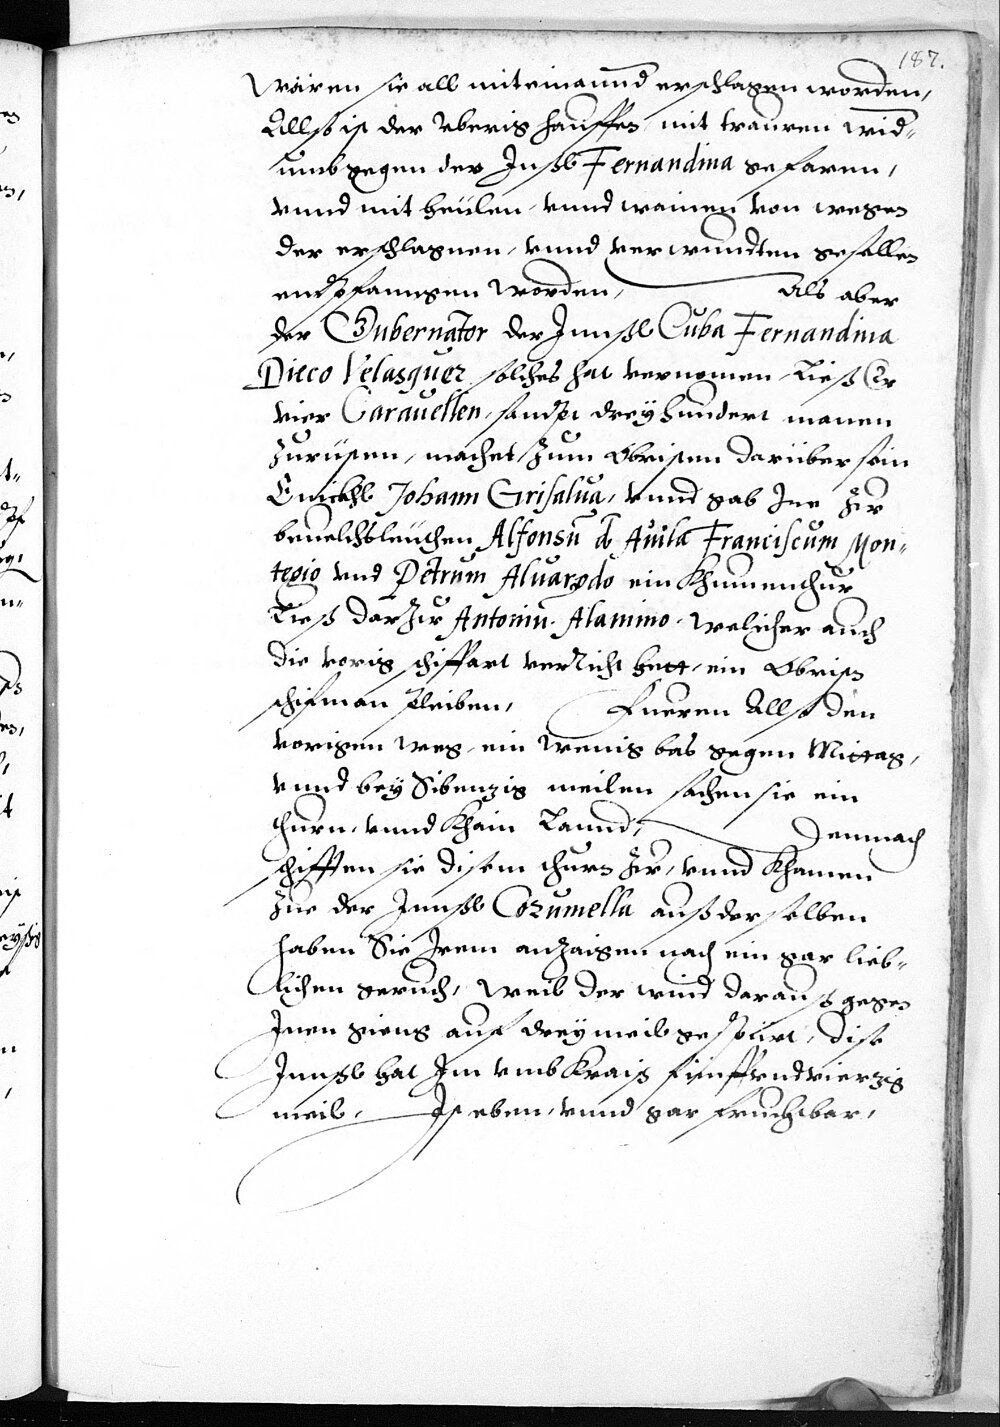 187.
Wären sie all miteinannd erschlagen worden,
Allso ist der vberig hauffen mit trauren wid-
umb gegen der Insßl Fernandina gefaren,
vnnd mit heülen vnnd wainen von wegen
der erschlagnen, vnnd verwundten gesellen
endtpfanngen worden, Als aber
der Gubernator der Innsßl Cuba Fernandina
Dieco Velasquez solches hat vernomen, Ließ Er
vier Carauellen, sambt dreyhundert manen
Zurüsten, machet Zum Obristen darüber sein
Enickhl Johann Grisalua, vnnd gab Ine Zur
beuelchsleüthen Alfonsū de Auila Franciscum Mon-
tegio vnd Petrum Aluarado ein Khumenthur
Ließ darzur Antoniu. Alamino. welicher auch
die vorig schiffart verricht hett, ein Obristen
schifman bleiben, Fueren Allso den
vorigen weg, ein wenig bas gegen Mittag,
vnnd bey Sibenzig meilen sachen sie ein
thurn, vnnd Khain Lannd, Demnach
schifften sie disem thurn Zur, vnnd Khamen
Zue der Innsßl Cozumella auß derselben
haben Sie Irem anzaigen nach ein gar lieb-
lichen geruch, weil der wind darauß gegen
Inen gieng auf drey meil gespürt, dise
Innsßl hat Im vmbkraiß fünffundvierzig
meil, Ist eben, vnnd gar fruchtbar,